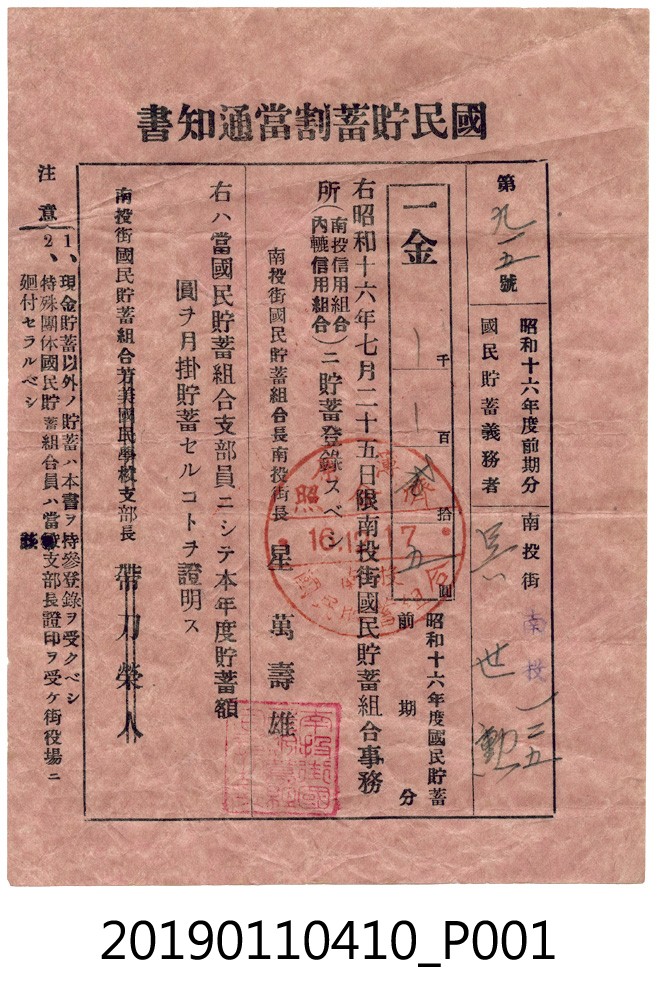 國民貯蓄割當通知書
第九一五號
昭和十六年度前期分
國民貯蓄義務者
南投街南投一二五
吳世勳
一金 千 百 貳拾五圓
昭和十六年度國民貯蓄
前期分
右昭和十六年七月二十五日限南投街國民貯蓄組合事務
所(南投信用組合 內轆信用組合)ニ貯蓄登錄スベシ
南投街國民貯蓄組合長南投街長 星 萬壽雄
右ハ當國民貯蓄組合支部員ニシテ本年度貯蓄額
圓ヲ月掛貯蓄セルコトヲ證明ス
南投街國民貯蓄組合芳美國民學校支部長 帶刀榮人
注意
1、現金貯蓄以外ノ貯蓄ハ本書ヲ持參登錄ヲ受クベシ
2、特殊團体國民貯蓄組合員ハ當該支部長證印ヲ受ケ街役場ニ
廻付セラルベシ
20190110410_P001